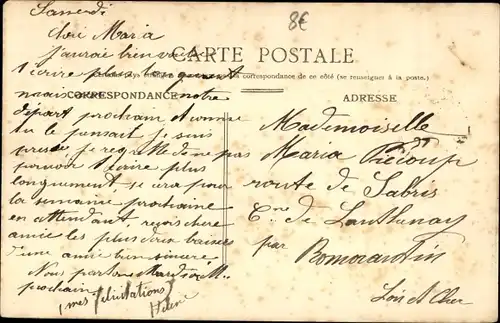 Samedi
8€
Chère Maria
CARTE POSTALE
J'aurai bien voulu
t'écrire plus
la correspondance de ce côté (se renseigner à la poste.)
mais notre
CORRESPONDANCE
ADRESSE
départ prochain
tu le pensait je suis
pressé je regrette de ne pas
pouvoir t'écrire plus
longuement, se sera pour
la semaine prochaine
en attendant reçois chère
amie les plus doux baisers
d'une amie bien sincère
Nous partons Mardi
prochain
mes félicitations
Mademoiselle
Maria
route de Salbris
Cne de Lanthenay
par
Romorantin
Loir et Cher